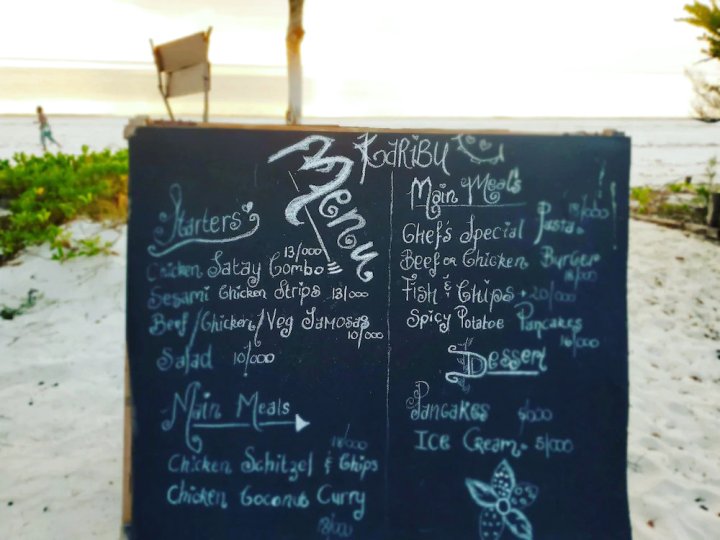 Menu
Karibu
Starters
13/000
Chicken Satay Combo
Sesami Chicken Strips 13/000
Beef/Chicken/Veg Samosas
10/000
Salad 10/000
Main Meals
18/000
Chicken Schitzel & Chips
Chicken Coconut Curry
18/000
Main Meals
Chef's Special Pasta
Beef or Chicken Burger
18/000
Fish & Chips 20/000
Spicy Potatoe Pancakes
16/000
Dessert
Pancakes
Ice Cream 5/000